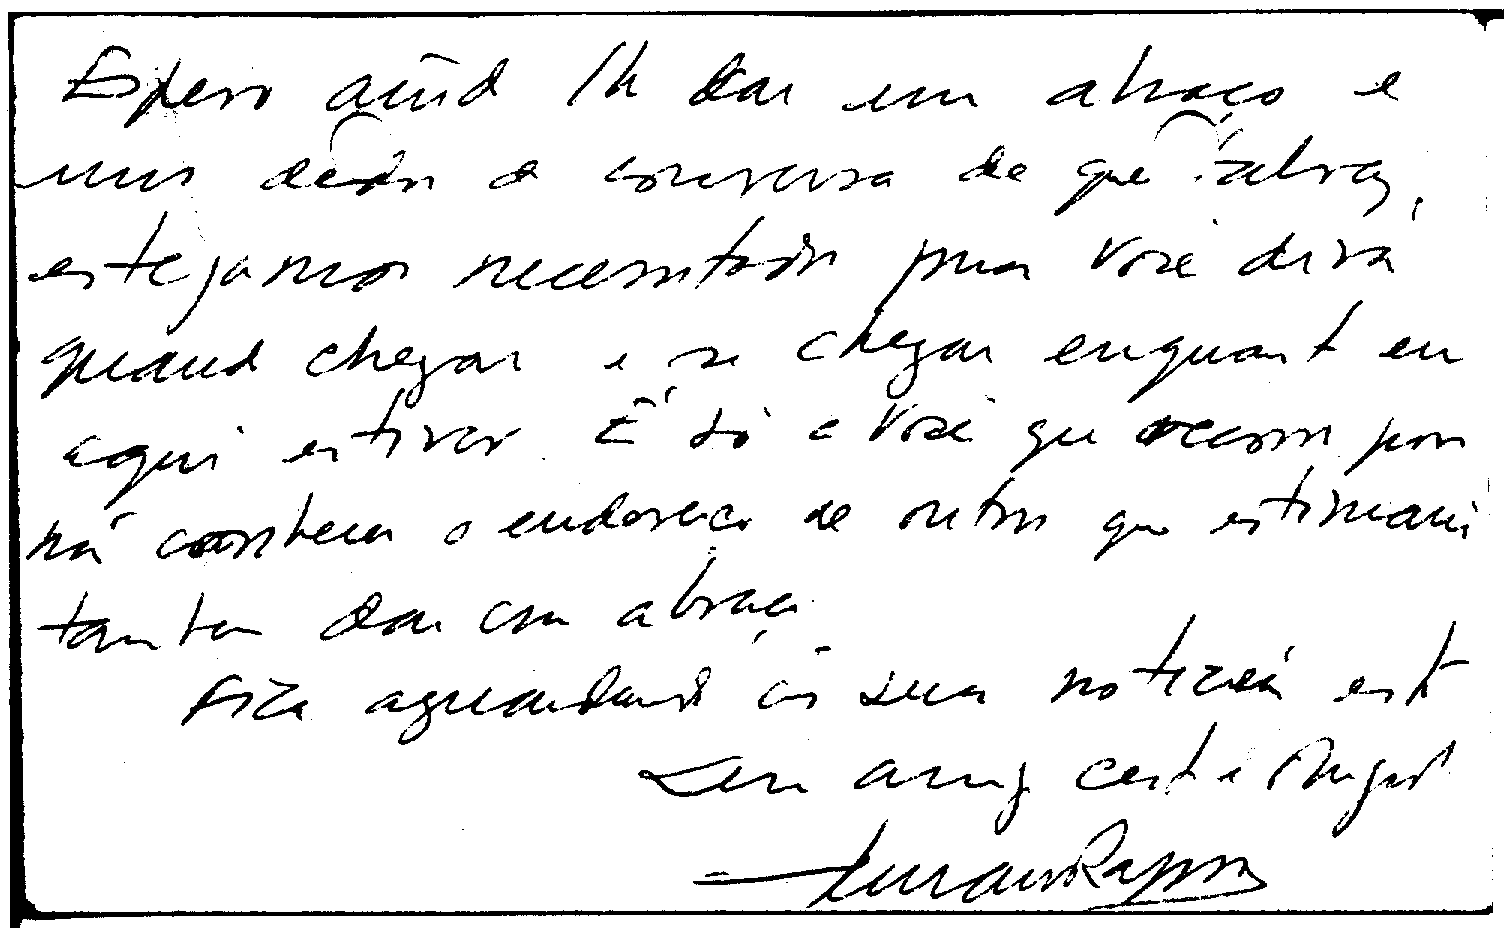 Espero aind lh dar um abraço e
uns dedos de conversa de que talvez,
estejamos necessitados para você dirá
quand chegar e se chegar enquant eu
aqui estiver. É só a você que recorro por
não conhecer o endereço de outros que estimaria
tanto dar um abraço
Fica aguardand as suas notícias est
seu amig cert e